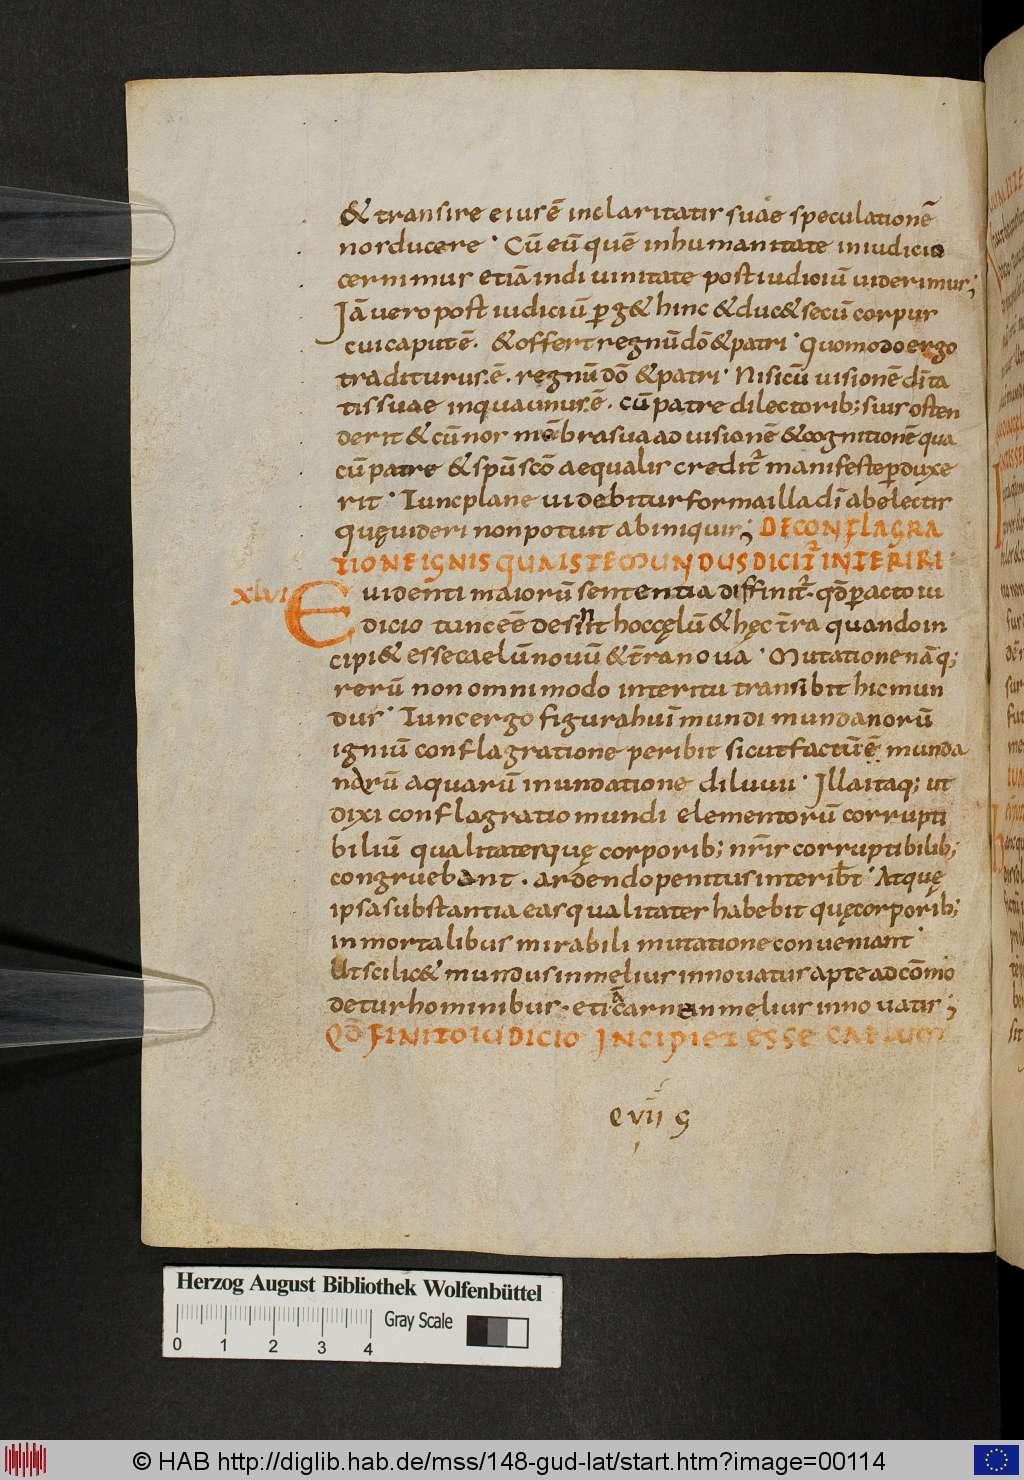 & transire eius ē in claritatis suae speculationē
nos ducere · Cū eū quē in humanitate in iudicio
cernimus etiā in diuinitate post iudiciū uiderimus;
Iā uero post iudiciū ꝑg& hinc & duc& secū corpus
cui caput ē. & offert regnū dō & patri · Quomodo ergo
traditurus ē. regnū dō & patri · Nisi cū uisionē diīta
tis suae in qua unus ē. cū patre dilectorib; suis osten
derit & cū nos mēbra sua ad uisionē & cognitionē qua
cū patre & spū scō aequalis credit̄ manifeste ꝑduxe
rit · Tunc plane uidebitur forma illa dī ab electis
quę uideri non potuit ab iniquis; DE CONFLAGRA
TIONE IGNIS QUA ISTE MUNDUS DICIT̄ INTERIRI
XLVI Euidenti maiorū sententia diffinit̄. qđ ꝑacto iu
dicio tunc eē desinit hoc cęlū & hęc t̄ra quando in
cipi& esse caelū nouū & t̄ra noua · Mutatione nāq;
rerū non omnimodo interitu transibit hic mun
dus · Tunc ergo figura huī mundi mundanorū
igniū conflagratione peribit sicut factū ē munda
narū aquarū inundatione diluuii · Illa itaq; ut
dixi conflagratio mundi elementorū corrupti
biliū qualitates quę corporib; nr̄is corruptibilib;
congruebant. ardendo penitus interibt · Atque
ipsa substantia eas qualitates habebit quę corporib;
inmortalibus mirabili mutatione conueniant ·
Ut scilic& mundus in melius innouatus apte adcōmo
detur hominibus. etiā carne in melius innouatis;
QD FINITO IUDICIO INCIPIET ESSE CAELUM
Herzog August Bibliothek Wolfenbüttel
0 1 2 3 4 Gray Scale
© HAB http://diglib.hab.de/mss/148-gud-lat/start.htm?image=00114